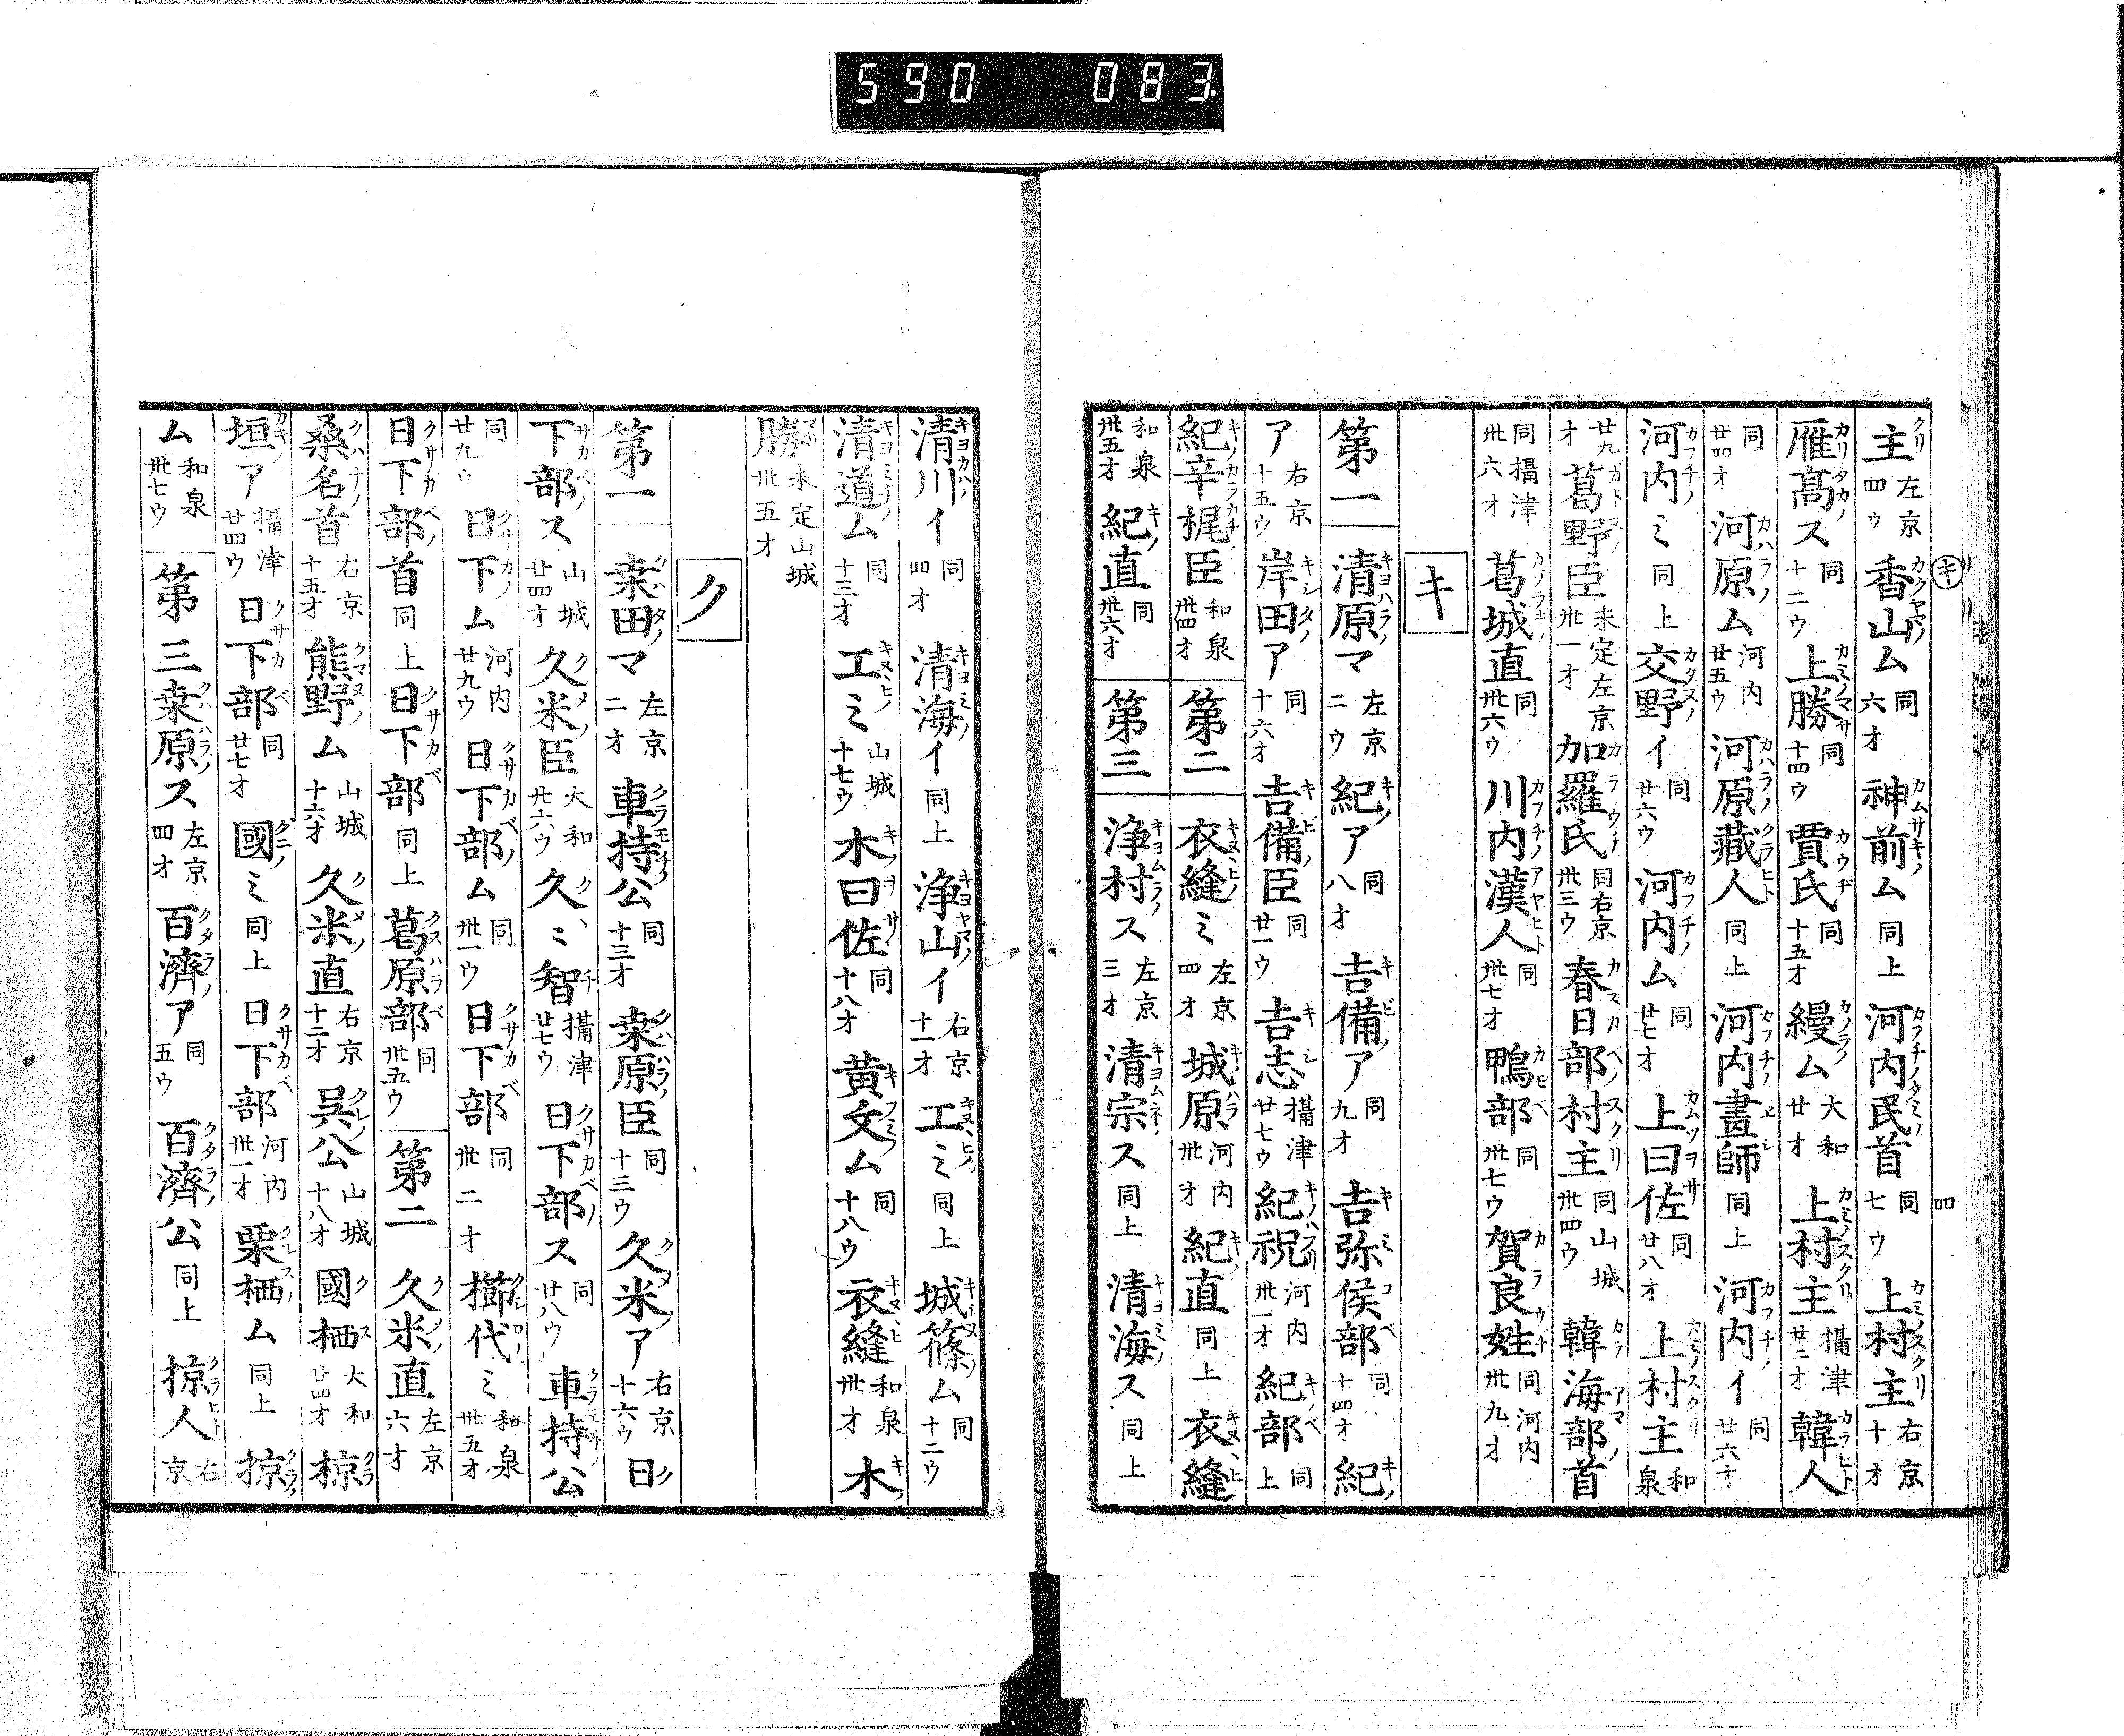 590 083.
キ
四
主 左京四ウ 香山ム 同六オ 神前ム 同上 河内民首 同七ウ 上村主 右京十オ
雁高ス 同十二ウ 上勝 同十四ウ 賈氏 同十五オ 縵ム 大和廿オ 上村主 攝津廿二オ 韓人
同廿四オ 河原ム 河内廿五ウ 河原藏人 同上 河内畫師 同上 河内イ 同廿六オ
河内ミ 同上 交野イ 同廿六ウ 河内ム 同廿七オ 上曰佐 同廿八オ 上村主 和泉
廿九オ 葛野臣 未定左京卅一オ 加羅氏 同右京卅三ウ 春日部村主 同山城卅四ウ 韓海部首
同攝津卅六オ 葛城直 同卅六ウ 川内漢人 同卅七オ 鴨部 同卅七ウ 賀良姓 同河内卅九オ
キ
第一 清原マ 左京二ウ 紀ア 同八オ 吉備ア 同九オ 吉弥侯部 同十四オ 紀
ア 右京十五ウ 岸田ア 同十六オ 吉備臣 同廿一ウ 吉志 攝津廿七ウ 紀祝 河内卅一オ 紀部 同上
紀辛梶臣 和泉卅四オ 第二 衣縫ミ 左京四オ 城原 河内卅オ 紀直 同上 衣縫
和泉卅五オ 紀直 同卅六オ 第三 浄村ス 左京三オ 清宗ス 同上 清海ス 同上
清川イ 同四オ 清海イ 同上 浄山イ 右京十一オ 工ミ 同上 城篠ム 同十二ウ
清道ム 同十三オ 工ミ 山城十七ウ 木曰佐 同十八オ 黄文ム 同十八ウ 衣縫 和泉卅オ 木
勝 未定山城卅五オ
ク
第一 桒田マ 左京二オ 車持公 同十三オ 桒原臣 同十三ウ 久米ア 右京十六ウ 日
下部ス 山城廿四オ 久米臣 大和廿六ウ 久ミ智 攝津廿七ウ 日下部ス 同廿八ウ 車持公
同廿九ウ 日下ム 河内廿九ウ 日下部ム 同卅一ウ 日下部 同卅二オ 櫛代ミ 和泉卅五オ
日下部首 同上 日下部 同上 葛原部 同卅五ウ 第二 久米直 左京六オ
桑名首 右京十五オ 熊野ム 山城十六オ 久米直 右京十二オ 呉公 山城十八オ 國栖 大和廿四オ 椋
垣ア 攝津廿四ウ 日下部 同廿七オ 國ミ 同上 日下部 河内卅一オ 栗栖ム 同上 掠
ム 和泉卅七ウ 第三 桒原ス 左京四オ 百濟ア 同五ウ 百濟公 同上 掠人 右京